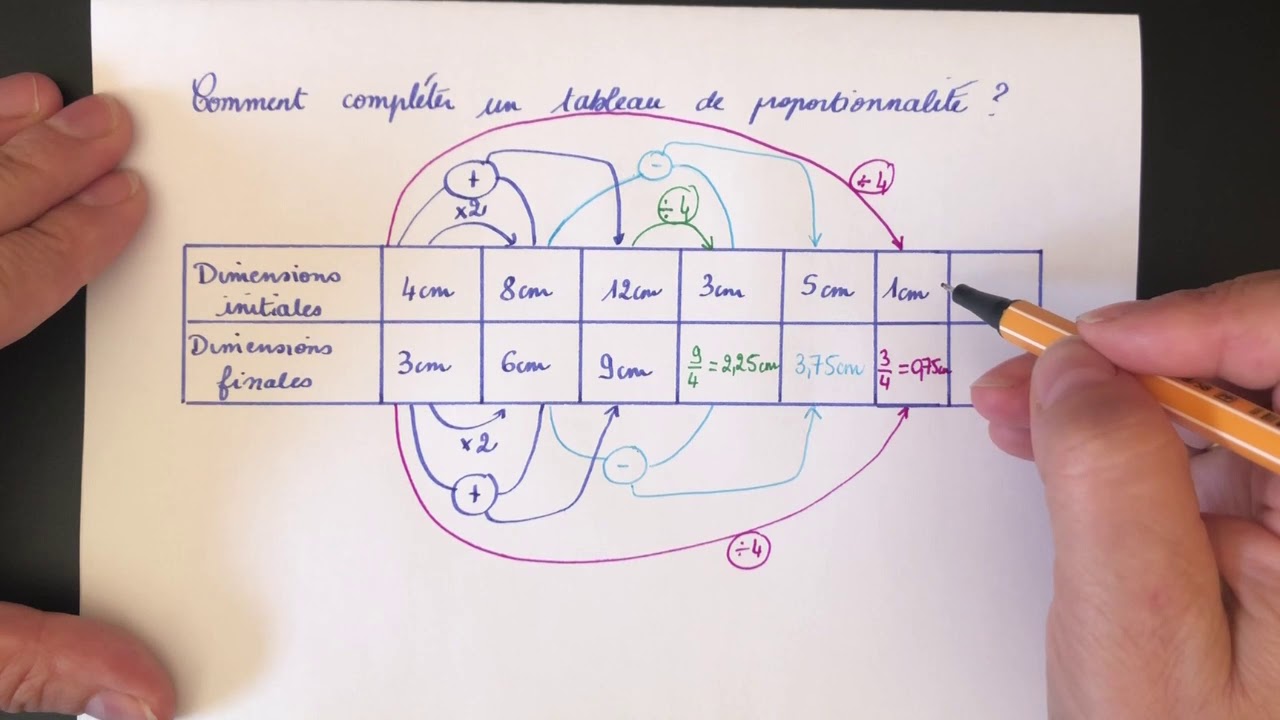 Comment compléter un tableau de proportionnalité ?
÷4
+
-
×2
÷4
Dimensions initiales
4cm 8cm 12cm 3cm 5cm 1cm
Dimensions finales
3cm 6cm 9cm 9/4 = 2,25cm 3,75cm 3/4 = 0,75cm
×2
-
+
÷4